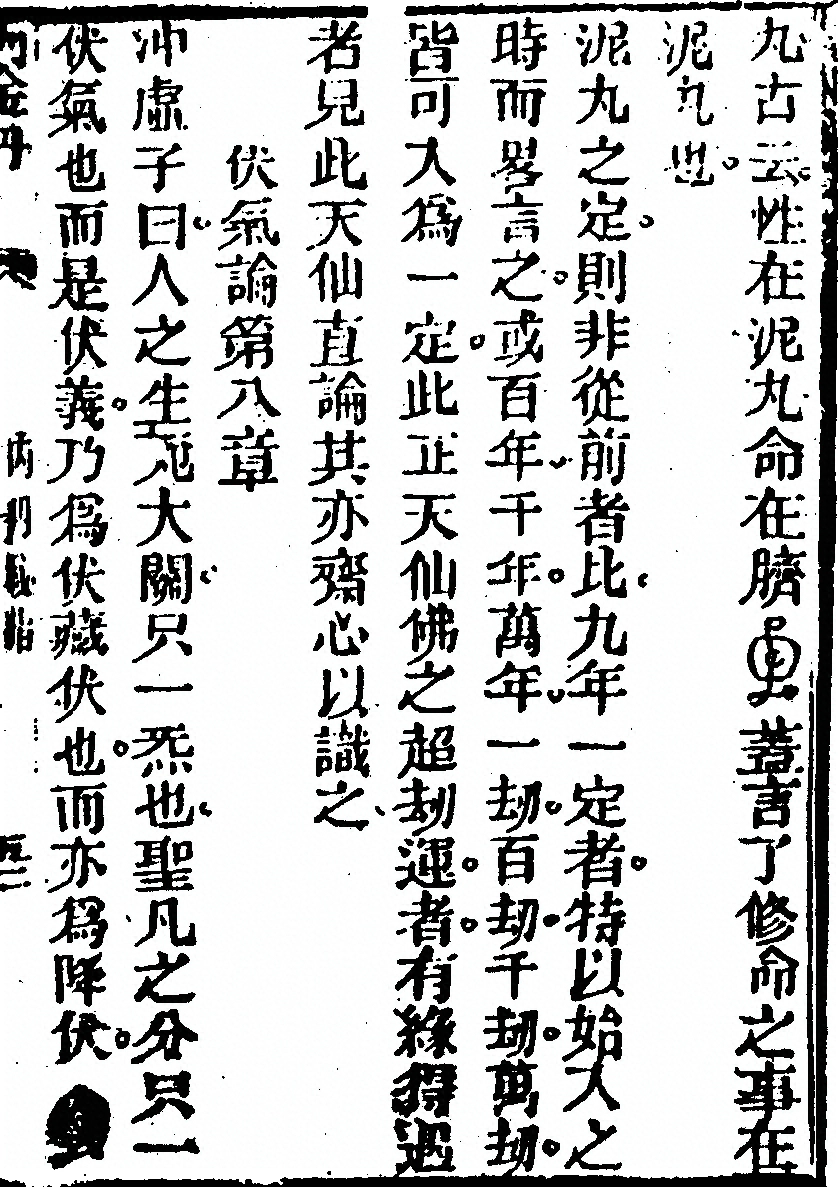 丸古云性在泥丸命在臍蓋言了修命之事在
泥丸也
泥丸之定則非從前者比九年一定者特以始入之
時而畧言之或百年千年萬年一劫百劫千劫萬劫
皆可入爲一定此正天仙佛之超劫運者有緣得遇
者見此天仙直論其亦齋心以識之
伏氣論第八章
冲虛子曰人之生死大關只一炁也聖凡之分只一
伏氣也而是伏義乃爲伏藏伏也而亦爲降伏